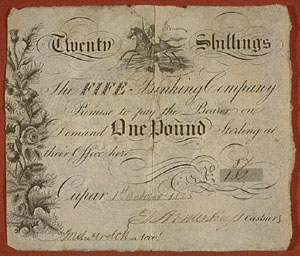 Twenty Shillings
The FIFE Banking Company
Promise to pay the Bearer on
Demand One Pound Sterling at
their Office here
Cupar 1st October
Cashier